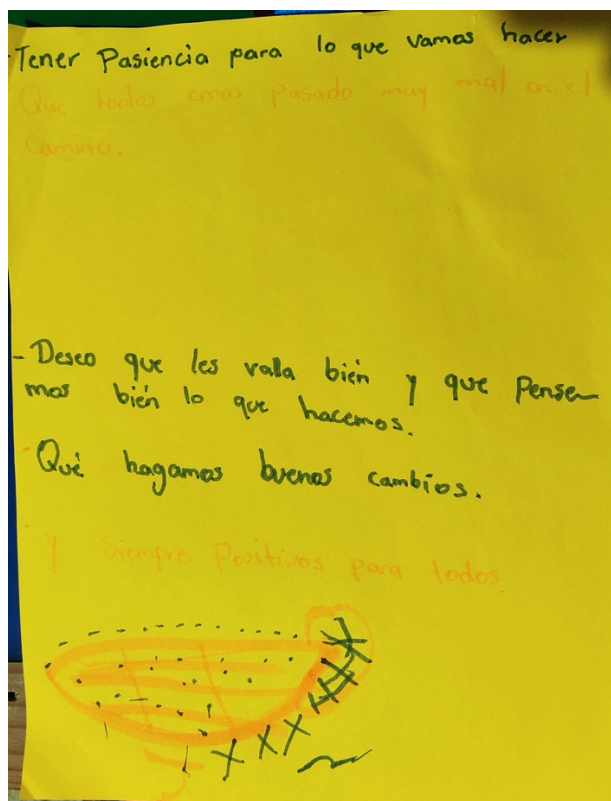 -Tener Pasiencia para lo que vamos hacer
Que todos emos pasado muy mal en el
camino.
-Deseo que les valla bién y que Pense-
mos bién lo que hacemos.
-Qué hagamos buenos cambios.
-Y siempre Positivos para todos